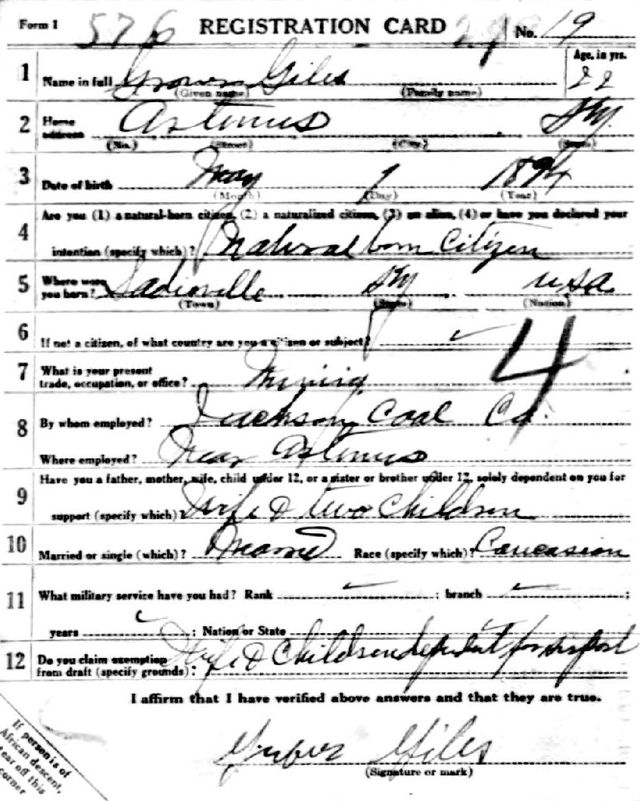 Form 1 576 REGISTRATION CARD No. 19
1 Name in full Giles Age, in yrs.
(Given name) (Family name) 22
2 Home address Artemus Ky.
(No.) (Street) (City) (State)
3 Date of birth May 9 1894
(Month) (Day) (Year)
Are you (1) a natural-born citizen, (2) a naturalized citizen, (3) an alien, (4) or have you declared your
4 intention (specify which)? Natural born Citizen
5 Where were you born? Sadieville Ky USA
(Town) (State) (Nation)
6 If not a citizen, of what country are you a citizen or subject?
4
7 What is your present trade, occupation, or office? Mining
8 By whom employed? Jackson Coal Co.
Where employed? Near Artemus
Have you a father, mother, wife, child under 12, or a sister or brother under 12, solely dependent on you for
9 support (specify which)? Wife & two Children
10 Married or single (which)? Married Race (specify which)? Caucasion
11 What military service have you had? Rank ; branch ;
years ; Nation or State
12 Do you claim exemption from draft (specify grounds)? Wife & Children dependent for support
I affirm that I have verified above answers and that they are true.
Giles
(Signature or mark)
If person is of
African descent,
tear off this
corner